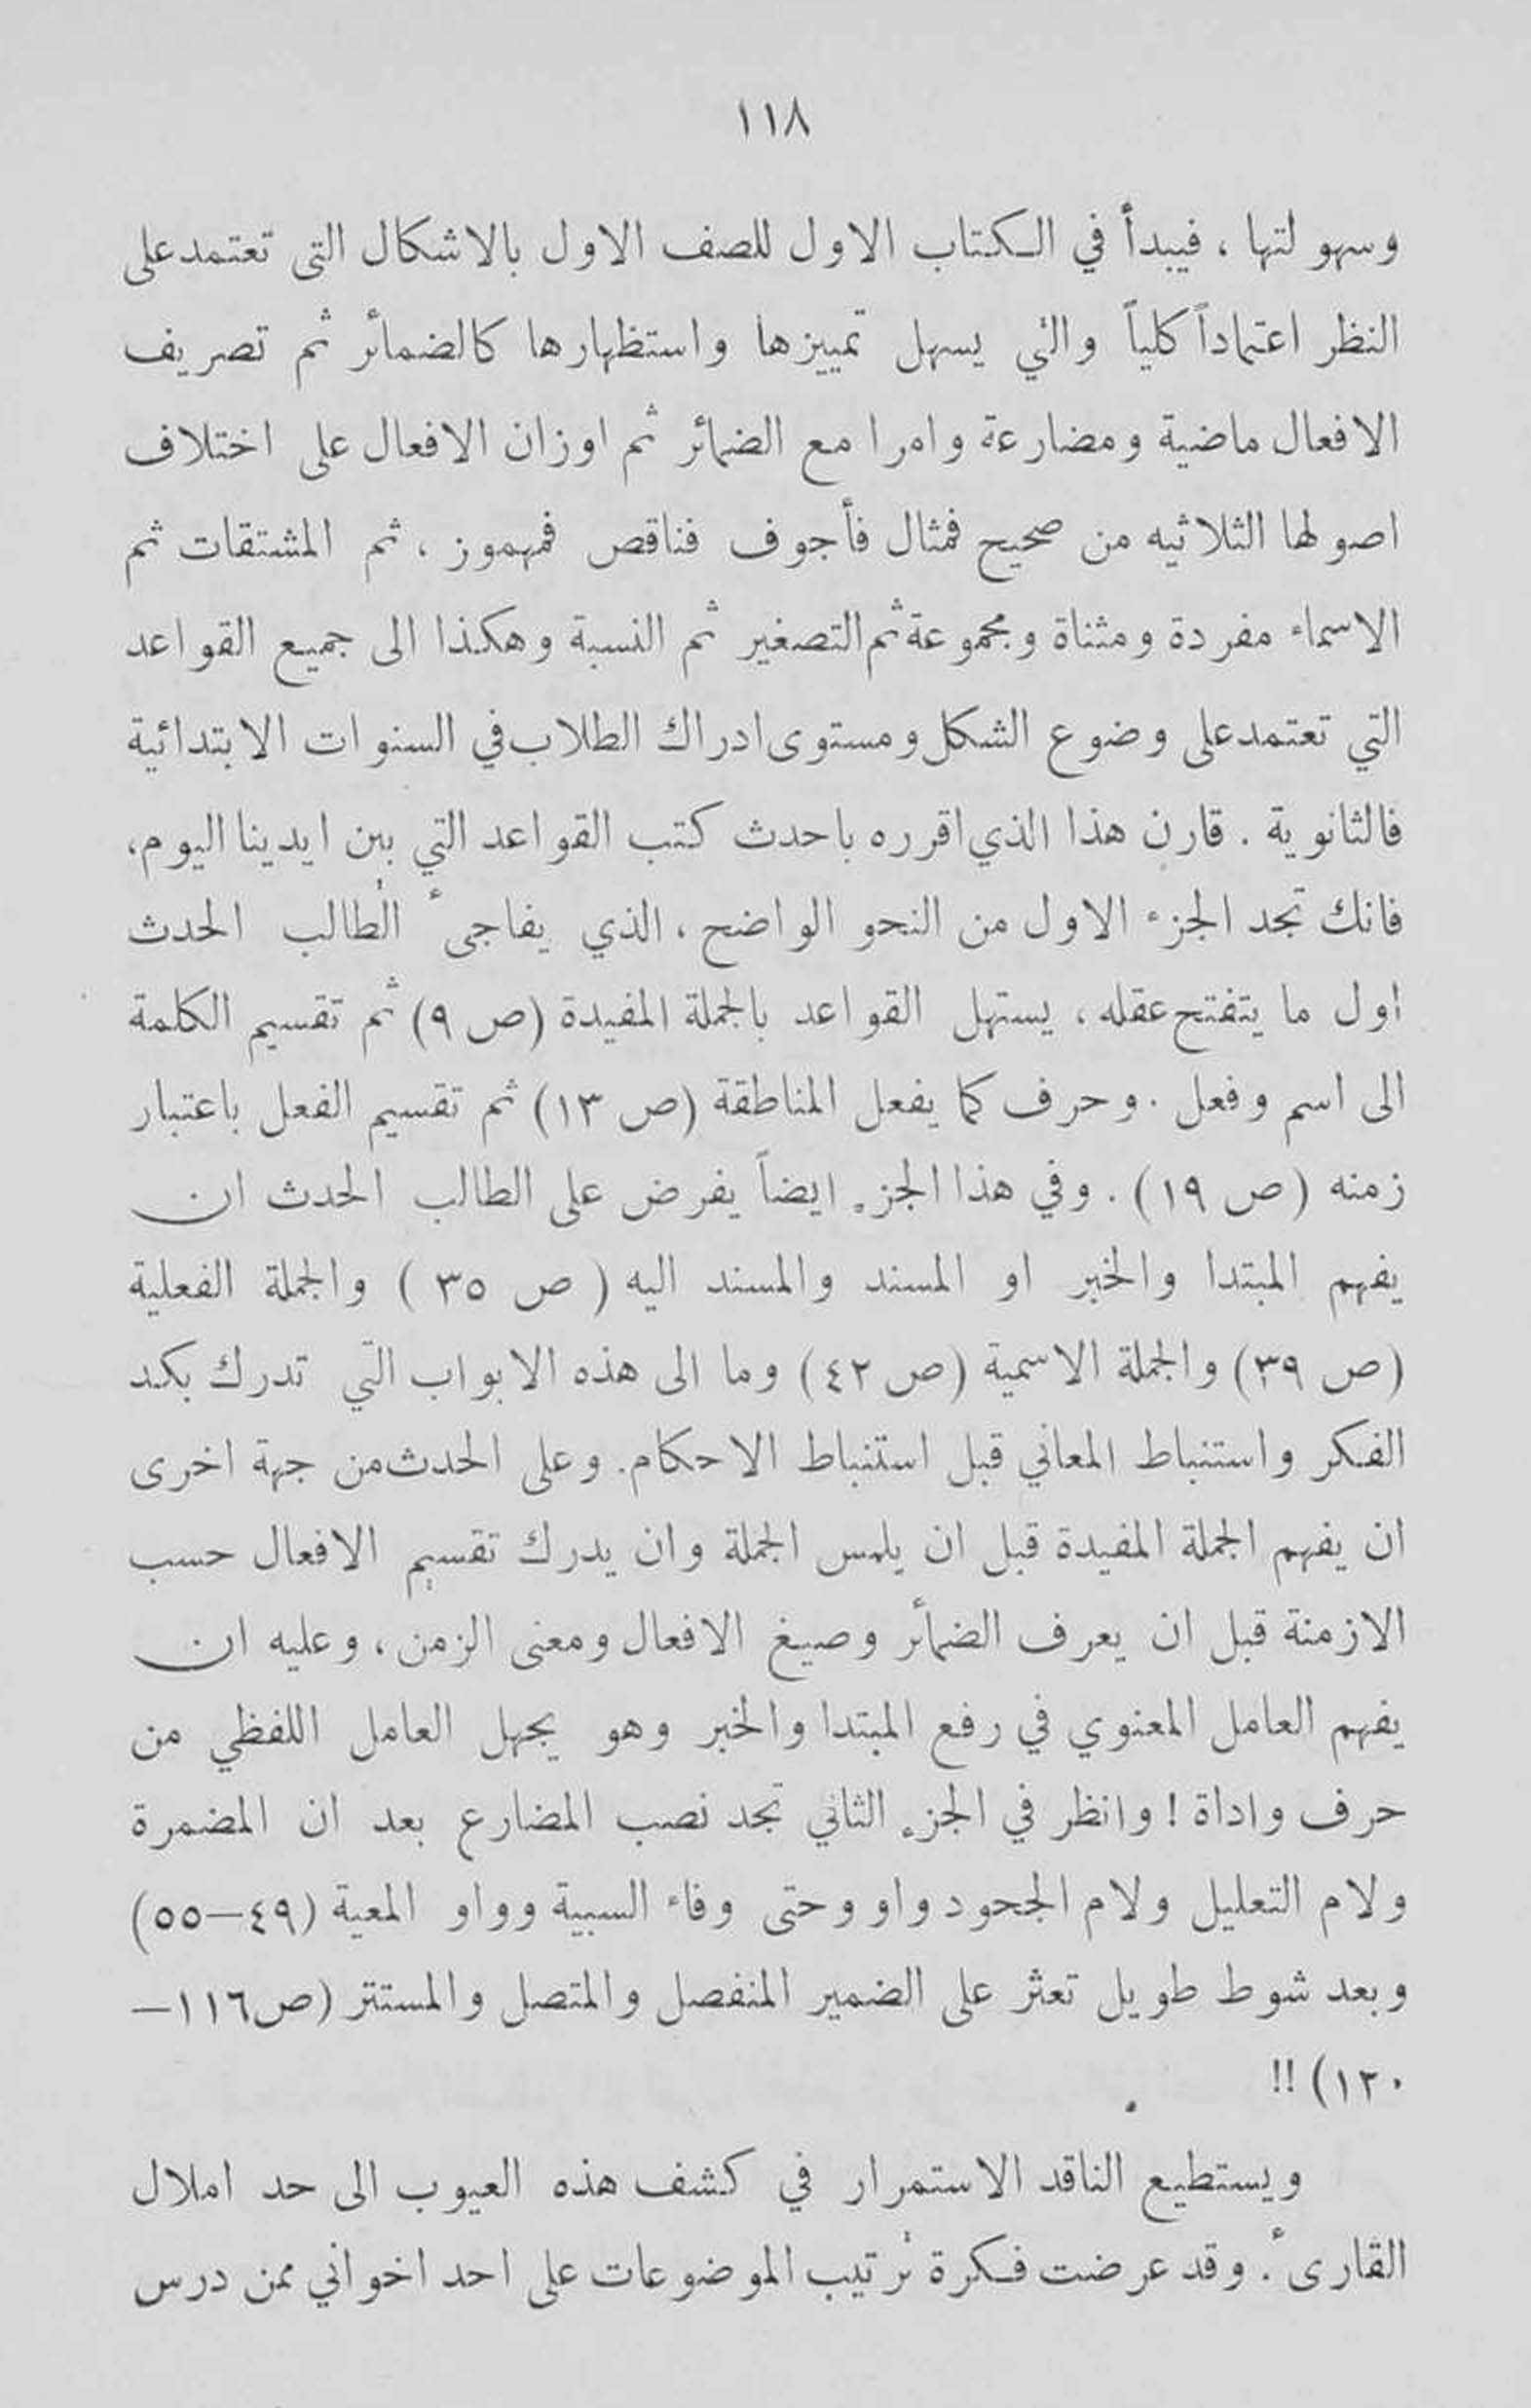 ١١٨
وسهولتها ، فيبدأ في الكتاب الاول للصف الاول بالاشكال التي تعتمد على
النظر اعتماداً كلياً والتي يسهل تمييزها واستظهارها كالضمائر ثم تصريف
الافعال ماضية ومضارعة وامرا مع الضمائر ثم اوزان الافعال على اختلاف
اصولها الثلاثيه من صحيح فمثال فأجوف فناقص فمهموز ، ثم المشتقات ثم
الاسماء مفردة ومثناة ومجموعة ثم التصغير ثم النسبة وهكذا الى جميع القواعد
التي تعتمد على وضوع الشكل ومستوى ادراك الطلاب في السنوات الابتدائية
فالثانوية . قارن هذا الذي اقرره باحدث كتب القواعد التي بين ايدينا اليوم،
فانك تجد الجزء الاول من النحو الواضح ، الذي يفاجىء الطالب الحدث
اول ما يتفتح عقله ، يستهل القواعد بالجملة المفيدة (ص ٩) ثم تقسيم الكلمة
الى اسم وفعل . وحرف كما يفعل المناطقة (ص ١٣) ثم تقسيم الفعل باعتبار
زمنه (ص ١٩) . وفي هذا الجزء ايضاً يفرض على الطالب الحدث ان
يفهم المبتدا والخبر او المسند والمسند اليه ( ص ٣٥ ) والجملة الفعلية
(ص ٣٩) والجملة الاسمية (ص ٤٢) وما الى هذه الابواب التي تدرك بكد
الفكر واستنباط المعاني قبل استنباط الاحكام. وعلى الحدث من جهة اخرى
ان يفهم الجملة المفيدة قبل ان يلمس الجملة وان يدرك تقسيم الافعال حسب
الازمنة قبل ان يعرف الضمائر وصيغ الافعال ومعنى الزمن ، وعليه ان
يفهم العامل المعنوي في رفع المبتدا والخبر وهو يجهل العامل اللفظي من
حرف واداة ! وانظر في الجزء الثاني تجد نصب المضارع بعد ان المضمرة
ولام التعليل ولام الجحود واو وحتى وفاء السببية وواو المعية (٤٩—٥٥)
وبعد شوط طويل تعثر على الضمير المنفصل والمتصل والمستتر (ص١١٦—
١٢٠) !!
ويستطيع الناقد الاستمرار في كشف هذه العيوب الى حد املال
القارىء . وقد عرضت فكرة ترتيب الموضوعات على احد اخواني ممن درس